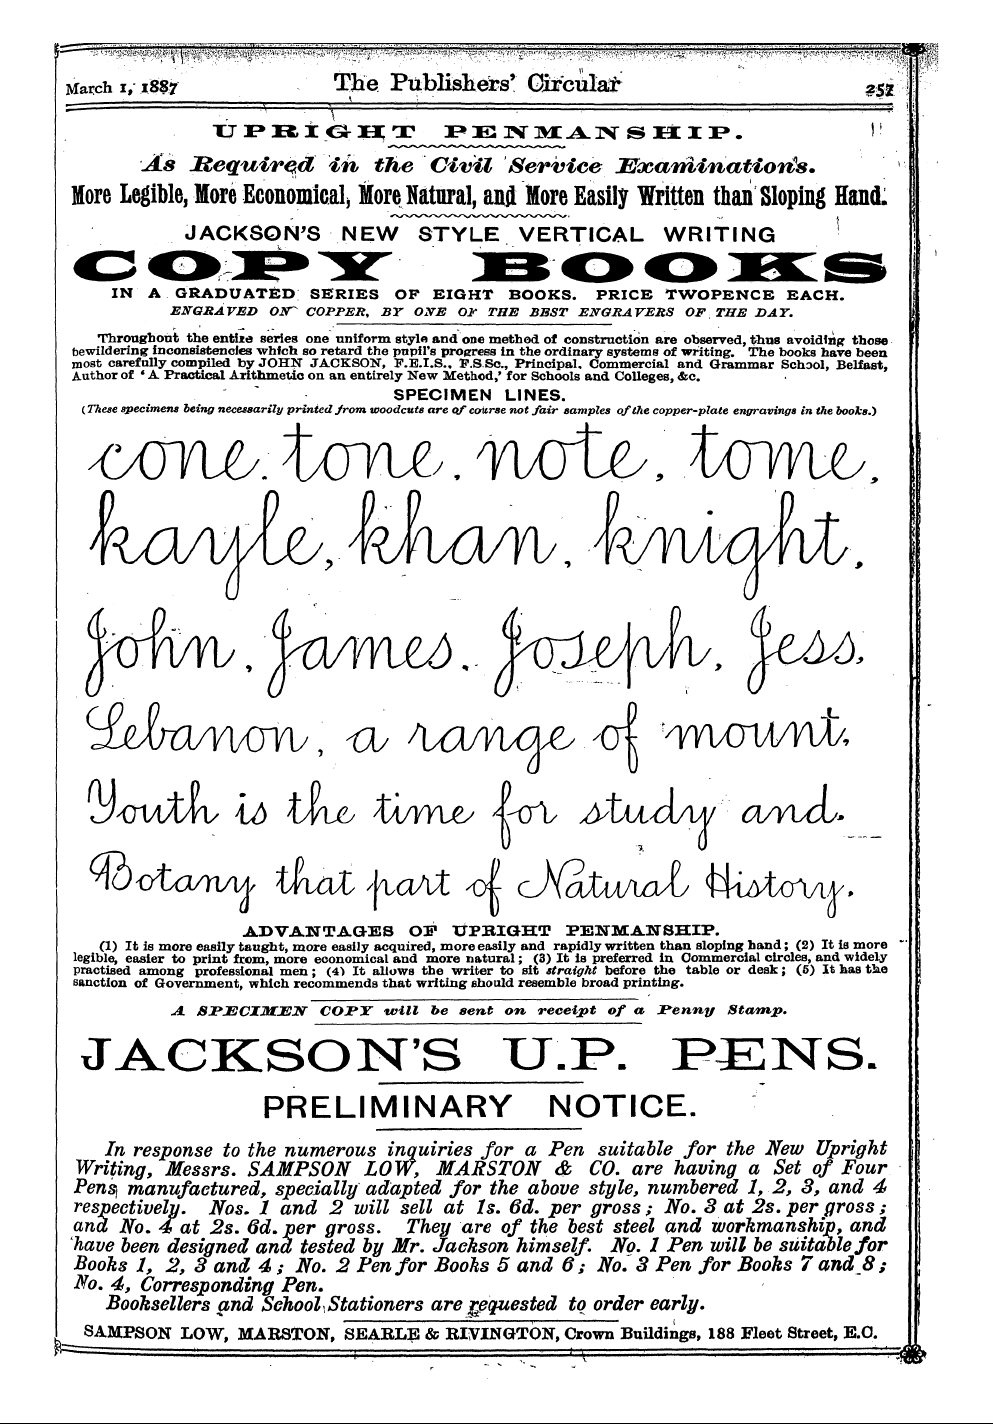 March 1, 1887 The Publishers' Circular 251
UPRIGHT PENMANSHIP.
As Required in the Civil Service Examinations.
More Legible, More Economical, More Natural, and More Easily Written than Sloping Hand.
JACKSON'S NEW STYLE VERTICAL WRITING
COPY BOOKS
IN A GRADUATED SERIES OF EIGHT BOOKS. PRICE TWOPENCE EACH.
ENGRAVED ON COPPER, BY ONE OF THE BEST ENGRAVERS OF THE DAY.
Throughout the entire series one uniform style and one method of construction are observed, thus avoiding those
bewildering inconsistencies which so retard the pupil's progress in the ordinary systems of writing. The books have been
most carefully compiled by JOHN JACKSON, F.E.I.S., F.S.Sc., Principal, Commercial and Grammar School, Belfast,
Author of 'A Practical Arithmetic on an entirely New Method,' for Schools and Colleges, &c.
SPECIMEN LINES.
(These specimens being necessarily printed from woodcuts are of course not fair samples of the copper-plate engravings in the books.)
cone. tone, note, tome,
kayle, khan, knight,
John, James. Joseph, Jess,
Lebanon, a range of mount,
Youth is the time for study and.
Botany that part of Natural History.
ADVANTAGES OF UPRIGHT PENMANSHIP.
(1) It is more easily taught, more easily acquired, more easily and rapidly written than sloping hand; (2) It is more
legible, easier to print from, more economical and more natural; (3) It is preferred in Commercial circles, and widely
practised among professional men; (4) It allows the writer to sit straight before the table or desk; (5) It has the
sanction of Government, which recommends that writing should resemble broad printing.
A SPECIMEN COPY will be sent on receipt of a Penny Stamp.
JACKSON'S U.P. PENS.
PRELIMINARY NOTICE.
In response to the numerous inquiries for a Pen suitable for the New Upright
Writing, Messrs. SAMPSON LOW, MARSTON & CO. are having a Set of Four
Pens manufactured, specially adapted for the above style, numbered 1, 2, 3, and 4
respectively. Nos. 1 and 2 will sell at 1s. 6d. per gross; No. 3 at 2s. per gross;
and No. 4 at 2s. 6d. per gross. They are of the best steel and workmanship, and
have been designed and tested by Mr. Jackson himself. No. 1 Pen will be suitable for
Books 1, 2, 3 and 4; No. 2 Pen for Books 5 and 6; No. 3 Pen for Books 7 and 8;
No. 4, Corresponding Pen.
Booksellers and School Stationers are requested to order early.
SAMPSON LOW, MARSTON, SEARLE & RIVINGTON, Crown Buildings, 188 Fleet Street, E.C.